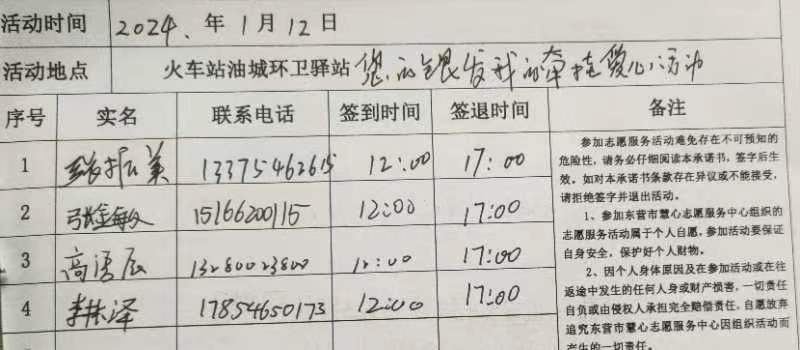 活动时间 2024、年 1月 12日
活动地点 火车站油城环卫驿站 您的银发我的牵挂 爱心活动
序号 实名 联系电话 签到时间 签退时间 备注
1 振美 13375462615 12:00 17:00
2 张金敏 15166200115 12:00 17:00
3 高 13280023800 12:00 17:00
4 李林泽 17854650173 12:00 17:00
参加志愿服务活动难免存在不可预知的
危险性，请务必仔细阅读本承诺书，签字后生
效。如对本承诺书条款存在异议或不能接受，
请拒绝签字并退出活动。
1、参加东营市慧心志愿服务中心组织的
志愿服务活动属于个人自愿，参加活动要保证
自身安全，保护好个人财物。
2、因个人身体原因及在参加活动或在往
返途中发生的任何人身或财产损害，一切责任
自负或由侵权人承担完全赔偿责任，自愿放弃
追究东营市慧心志愿服务中心因组织活动而
产生的一切责任。